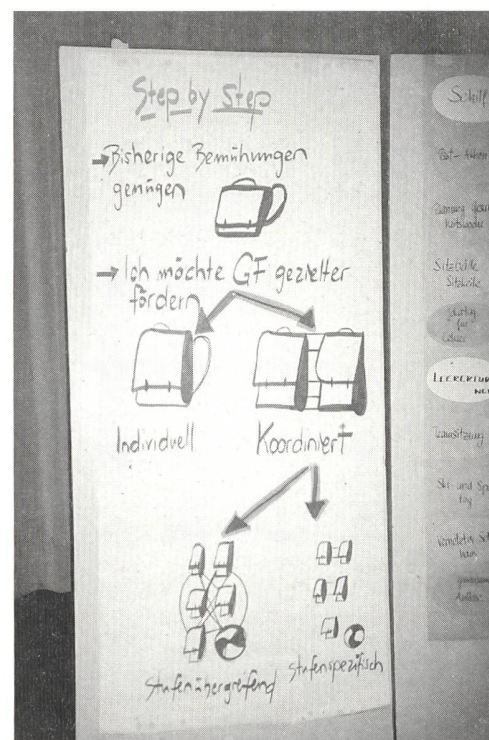 Step by Step
→ Bisherige Bemühungen
genügen
→ Ich möchte GF gezielter
fördern
Individuell
Koordiniert
Stufenübergreifend
Stufenspezifisch
Schilf
Sitzbälle
für
Teamsitzung
Ski- und Sp
tag